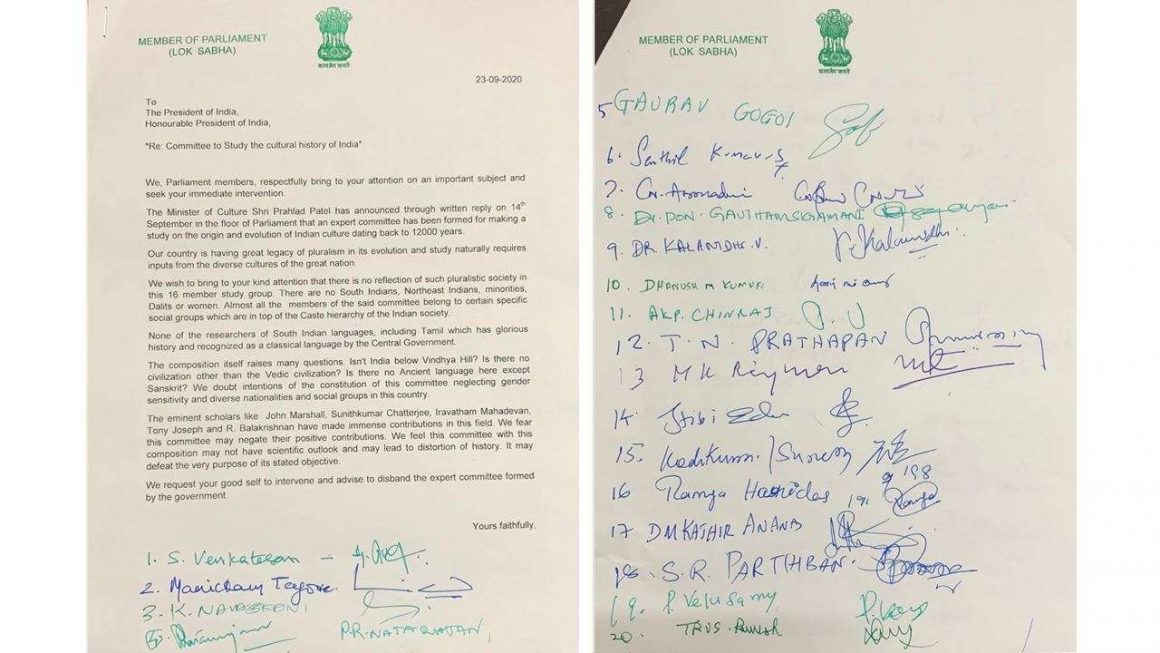 MEMBER OF PARLIAMENT
(LOK SABHA)
सत्यमेव जयते
23-09-2020
To
The President of India,
Honourable President of India,
"Re: Committee to Study the cultural history of India"
We, Parliament members, respectfully bring to your attention on an important subject and
seek your immediate intervention.
The Minister of Culture Shri Prahlad Patel has announced through written reply on 14th
September in the floor of Parliament that an expert committee has been formed for making a
study on the origin and evolution of Indian culture dating back to 12000 years.
Our country is having great legacy of pluralism in its evolution and study naturally requires
inputs from the diverse cultures of the great nation.
We wish to bring to your kind attention that there is no reflection of such pluralistic society in
this 16 member study group. There are no South Indians, Northeast Indians, minorities,
Dalits or women. Almost all the members of the said committee belong to certain specific
social groups which are in top of the Caste hierarchy of the Indian society.
None of the researchers of South Indian languages, including Tamil which has glorious
history and recognized as a classical language by the Central Government.
The composition itself raises many questions. Isn't India below Vindhya Hill? Is there no
civilization other than the Vedic civilization? Is there no Ancient language here except
Sanskrit? We doubt intentions of the constitution of this committee neglecting gender
sensitivity and diverse nationalities and social groups in this country.
The eminent scholars like John Marshall, Sunithkumar Chatterjee, Iravatham Mahadevan,
Tony Joseph and R. Balakrishnan have made immense contributions in this field. We fear
this committee may negate their positive contributions. We feel this committee with this
composition may not have scientific outlook and may lead to distortion of history. It may
defeat the very purpose of its stated objective.
We request your good self to intervene and advise to disband the expert committee formed
by the government.
Yours faithfully,
1. S. Venkatesan -
2. Manickam Tagore
3. K. NAVASKENI
P.R. NATARAJAN,
MEMBER OF PARLIAMENT
(LOK SABHA)
सत्यमेव जयते
5 GAURAV GOGOI
6. Senthil Kumar.S
7. CN-Annadurai
8. Dr. DON. GAUTHAMSIGAMANI
9. DR. KALANIDHI.V.
10. DHANUSH M KUMAR
11. AKP. CHINRAJ
12. T. N. PRATHAPAN
13 M K
14.
15. Kodikunnil Suresh
16 Ramya Haridas
17. DM KATHIR ANAND
18. S.R. PARTHIBAN.
19. P. Velusamy
20.